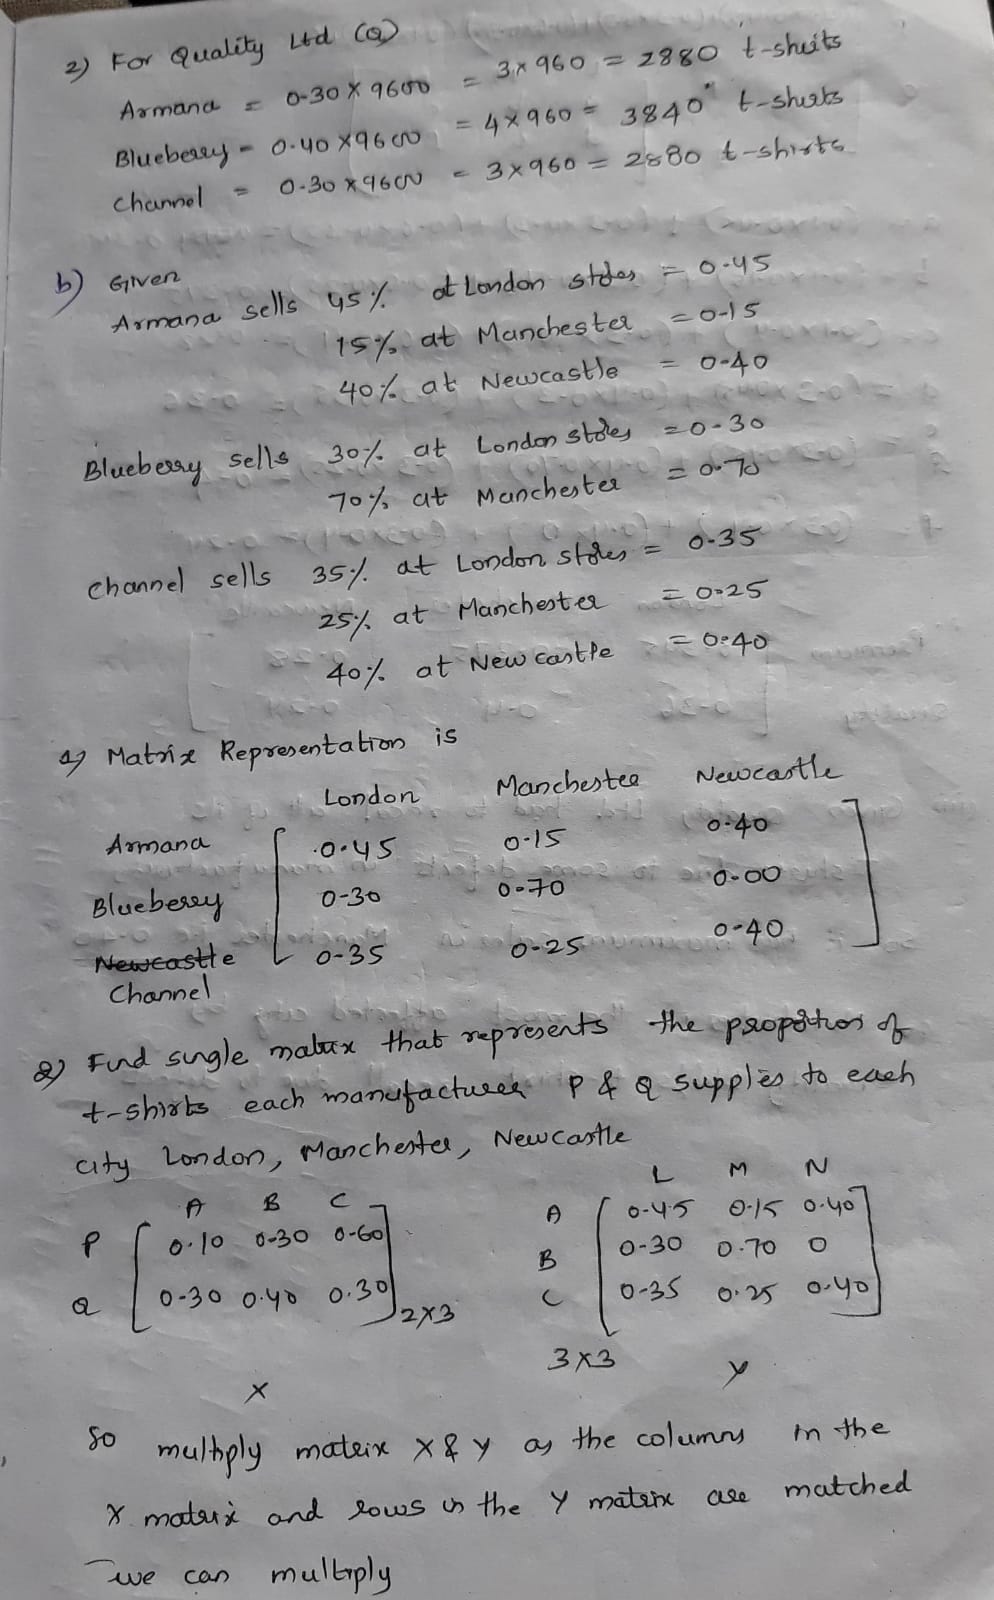 2) For Quality Ltd (Q)
Armana = 0-30 X 9600 = 3x960 = 2880 t-shirts
Blueberry = 0.40 X9600 = 4x960 = 3840 t-shirts
Channel = 0.30 x9600 = 3x960 = 2880 t-shirts
b) Given
Armana sells 45% at London stores = 0.45
15% at Manchester = 0.15
40% at Newcastle = 0.40
Blueberry sells 30% at London stores = 0.30
70% at Manchester = 0.70
Channel sells 35% at London stores = 0.35
25% at Manchester = 0.25
40% at New castle = 0.40
1) Matrix Representation is
London Manchester Newcastle
Armana 0.45 0.15 0.40
Blueberry 0.30 0.70 0.00
Newcastle 0.35 0.25 0.40
Channel
2) Find single matrix that represents the proportion of
t-shirts each manufacturer P & Q supplies to each
city London, Manchester, Newcastle
A B C L M N
P [0.10 0.30 0.60] A [0.45 0.15 0.40]
Q [0.30 0.40 0.30] 2x3 B [0.30 0.70 0]
C [0.35 0.25 0.40]
3x3
X Y
So multiply matrix X & Y as the columns in the
X matrix and rows in the Y matrix are matched
we can multiply